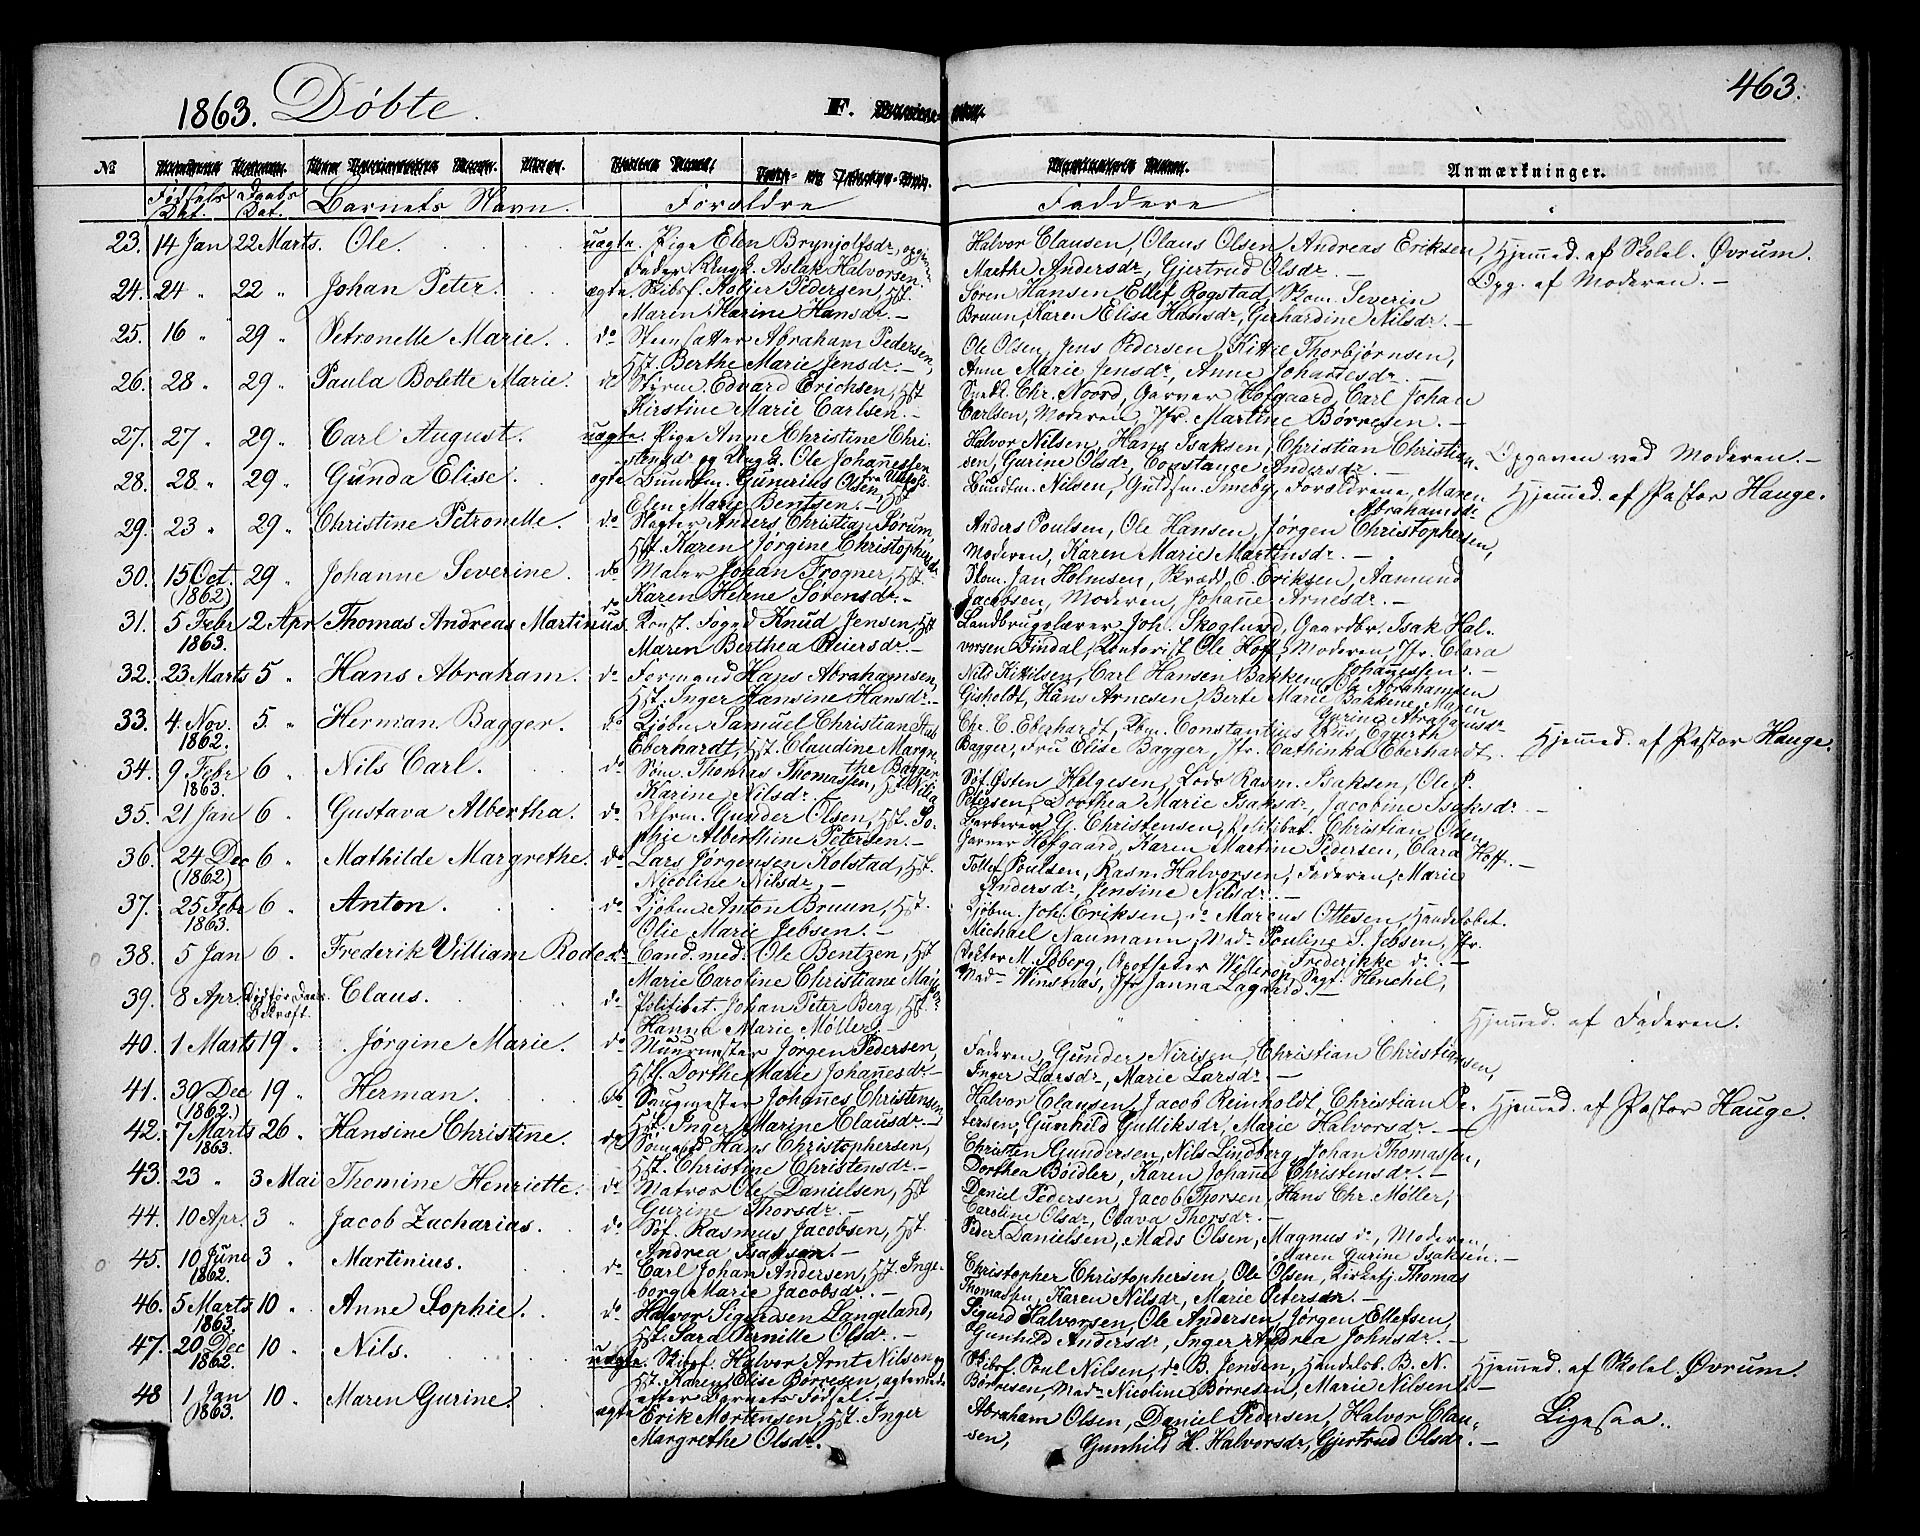 463.
1863. Døbte. F.
No
Anmærkninger.
Fødsels Dat. Daabs Dat. Barnets Navn. Forældre Faddere
23. 14 Jan 22 Marts. Ole. uægte. Pige Elen Brynjolfsdr, opgiven
Fader Ungk. Aslak Halvorsen
Halvor Clausen, Olaus Olsen, Andreas Eriksen,
Marthe Andersdr, Gjertrud Olsdr. —
Hjemmed. af Skolel. Øvrum.
Opg. af Moderen. —
24. 24 " 22 " Johan Peter. ægte Skibsf. Holjer Pedersen, Hst.
Maren Karine Hansdr. —
Søren Hansen Ellef Rogstad, Skom. Severin
Bruun, Karen Elise Hansdr, Gerhardine Nilsdr. —
25. 16 " 29 " Petronelle Marie. do Stensætter Abraham Pedersen,
Hst. Berthe Marie Jensdr. —
Ole Olsen, Jens Pedersen, Kittil Thorbjørnsen,
Anne Marie Jensdr, Anne Johannesdr. —
26. 28 " 29 " Paula Bolette Marie. do Styrm. Edvard Erichsen, Hst
Kirstine Marie Carlsen. —
Snedk. Chr. Noord, Garver Hofgaard, Carl Johan
Carlsen, Moderen, Jfr. Martine Børresen. —
27. 27 " 29 " Carl August. uægte. Pige Anne Christine Chri-
stensdr og Ungk. Ole Johannessen
fra Ulefos.
Halvor Nilsen, Hans Isaksen, Christian Christian-
sen, Gurine Olsdr, Constance Andersdr. —
Opgaven ved Moderen. —
28. 28 " 29 " Gunda Elise. ægte Bundtm. Gunerius Olsen, Hst
Elen Marie Bentsen. —
Bundtm. Nilsen, Guldsm. Smeby, Forældrene, Maren
Abrahamsdr
Hjemmed. af Pastor Hauge.
29. 23 " 29 " Christine Petronelle. do Slagter Anders Christian Sørum,
Hst. Karen Jørgine Christophersdr
Anders Poulsen, Ole Hansen, Jørgen Christophersen,
Moderen, Karen Marie Martinsdr. —
30. 15 Oct. (1862) 29 " Johanne Severine. do Maler Johan Frogner, Hst.
Karen Helene Sørensdr. —
Skom. Jan Holmsen, Skrædd. E. Eriksen, Aamund
Jacobsen, Moderen, Johanne Arnesdr. —
31. 5 Febr 1863. 2 Apr Thomas Andreas Martinus. do Konst. Foged Knud Jensen, Hst
Maren Berthea Reiersdr. —
Landbrugslærer Joh. Skoglund, Gaardbr. Isak Hal-
vorsen Findal, Kontorist Ole Hoff, Moderen, Jfr. Clara
Johannessen
32. 23 Marts 5 " Hans Abraham. do Formand Hans Abrahamsen,
Hst. Inger Hansine Hansdr. —
Nils Kittilsen, Carl Hansen Bakkene, Ole Abrahamsen
Gisholdt, Hans Arnesen, Berte Marie Bakkene, Maren
Gurine Abrahamsdr
33. 4 Nov. 1862. 5 " Herman Bagger. do Kjøbm. Samuel Christian Stub
Eberhardt, Hst. Claudine Margre-
the Bagger
Chr. C. Eberhardt, Kbm. Constantius Riis, Egverth
Bagger, Fru Elise Bagger, Jfr. Cathinka Eberhardt. —
Hjemmed. af Pastor Hauge.
34. 9 Febr 1863. 6 " Nils Carl. do Søm. Thomas Thomassen, Hst. Nilia
Karine Nilsdr. —
Søf. Østen Helgesen, Lods Rasm. Isaksen, Ole P.
Petersen, Dorthea Marie Isaksdr, Jacobine Isaksdr. —
35. 21 Jan 6 " Gustava Albertha. do Uhrm. Gunder Olsen, Hst. So-
phie Alberthine Petersen. —
Barberer G. Christensen, Politibet. Christian Olsen
Garver Hofgaard, Karen Martine Pedersen, Clara Hoff. —
36. 24 Dec (1862) 6 " Mathilde Margrethe. do Lars Jørgensen Kolstad, Hst.
Nicoline Nilsdr, —
Tollef Poulsen, Rasm. Halvorsen, Faderen, Marie
Andersdr, Jensine Nilsdr. —
37. 25 Febr 1863. 6 " Anton. do Kjøbm Anton Bruun, Hst.
Olie Marie Jebsen. —
Kjøbm. Joh. Eriksen, do Marcus Ottesen, Handelsbet.
Michael Naumann, Madm Pouline S. Jebsen, Jfr.
Frederikke do. —
38. 5 Jan 6 " Frederik Villiam Rode. do Cand. med. Ole Bentzen, Hst
Marie Caroline Christiane
Doktor M. Søberg, Apotheker, Sagf. Henchil,
Mad Winsnæs, Jfr Janna Lagaard. —
39. 8 Apr Claus. do Politibet. Johan Peter Berg, Hst.
Hanna Marie Møller. —
Hjemmed. af Faderen.
40. 1 Marts 19 " Jørgine Marie. do Muurmester Jørgen Pedersen,
Hst. Dorthe Marie Johannesdr —
Faderen, Gunder Nirisen, Christian Christiansen,
Inger Larsdr, Marie Larsdr. —
41. 30 Dec (1862.) 19 " Herman. do Saugmester Johannes Christensen
Hst. Inger Marine Clausdr. —
Halvor Clausen, Jacob Reinholdt, Christian Pe-
tersen, Gunhild Gulliksdr, Marie Halvorsdr. —
Hjemmed. af Pastor Hauge.
42. 7 Marts 1863. 26 " Hansine Christine. do Sømand Hans Christophersen,
Hst. Christine Christensdr. —
Christen Gundersen, Nils Lindberg, Johan Thomassen,
Dorthea Boidler, Karen Johanne Christensdr. —
43. 23 " 3 Mai Thomine Henriette. do Matros Ole Danielsen, Hst
Gurine Thorsdr. —
Daniel Pedersen, Jacob Thorsen, Hans Chr. Møller,
Caroline Olsdr, Olava Thorsdr. —
44. 10 Apr. 3 " Jacob Zacharias. do Søf. Rasmus Jacobsen, Hst.
Andrea Isaksen. —
Peder Danielsen, Mads Olsen, Magnus do, Moderen,
Maren Gurine Isaksen. —
45. 10 June 1862. 3 " Martinius. do Carl Johan Andersen, Hst. Inge-
borg Marie Jacobsdr. —
Christopher Christophersen, Ole Olsen, Kirketj. Thomas
Thomassen, Karen Nilsdr, Marie Petersdr. —
46. 5 Marts 1863. 10 " Anne Sophie. do Halvor Sigurdsen Langeland,
Hst. Sara Pernille Olsdr. —
Sigurd Halvorsen, Ole Andersen, Jørgen Ellefsen,
Gunhild Andersdr, Inger Andrea Johnsdr. —
47. 20 Dec 1862. 10 " Nils. uægte. Skibsf. Halvor Arnt Nilsen og
Hst. Karen Elise Børresen, ægteviede
efter Barnets Fødsel. —
Skibsf. Poul Nilsen, do B. Jensen, Handelsb. B. N.
Børresen, Madm Nicoline Børresen, Marie Nilsen. —
Hjemmed. af Skolel. Øvrum.
48 1 Jan 1863. 10 " Maren Gurine. ægte Erik Mortensen, Hst. Inger
Margrethe Olsdr.
Abraham Olsen, Daniel Pedersen, Halvor Clau-
sen, Gunhild H. Halvorsdr, Gjertrud Olsdr. —
Ligesaa.